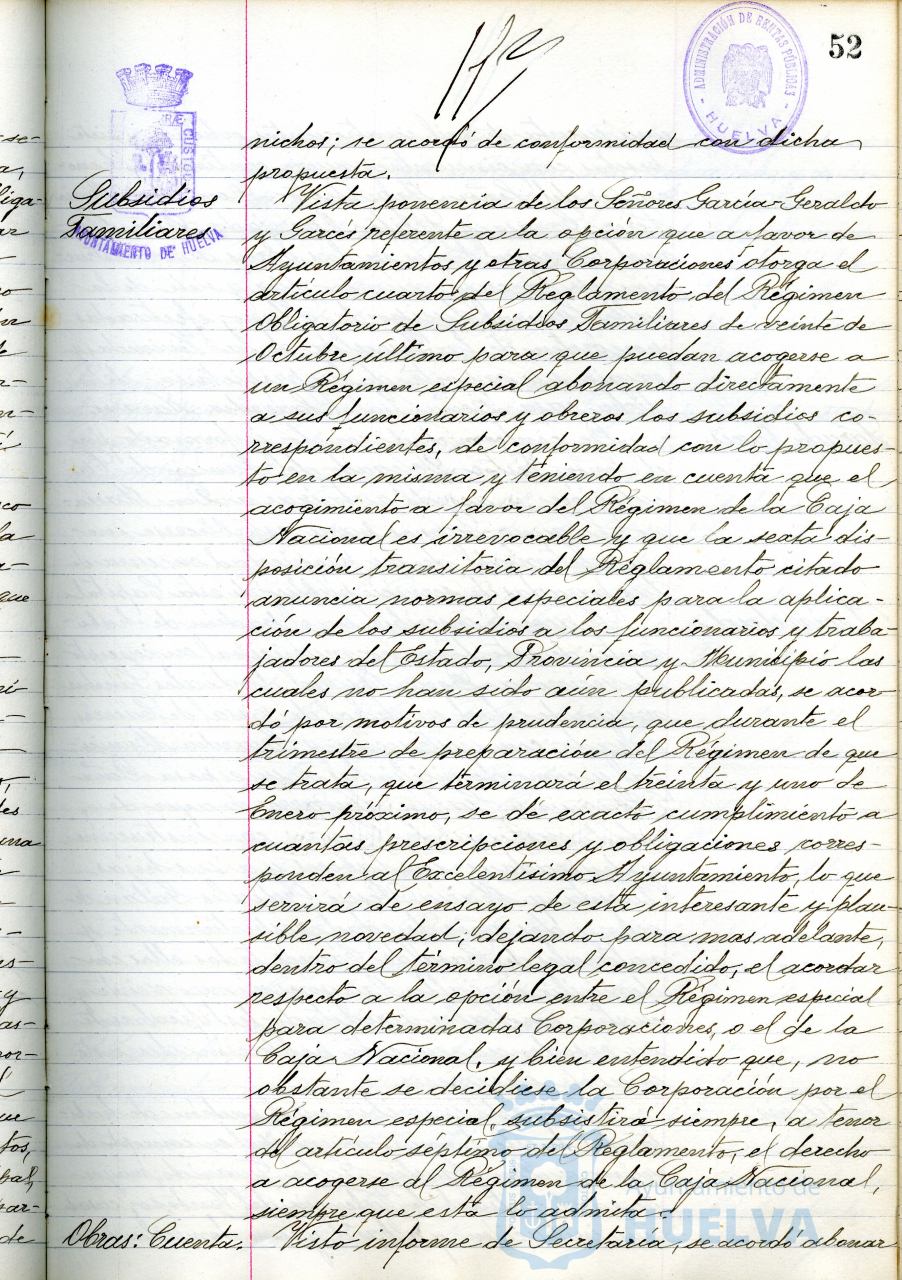 52
ADMINISTRACIÓN DE RENTAS PÚBLICAS
HUELVA
CUSTODI
AYUNTAMIENTO DE HUELVA
nichos; se acordó de conformidad con dicha
propuesta.
Subsidios
Familiares
Vista ponencia de los Señores García-Geraldo
y Garcés referente a la opción que a favor de
Ayuntamientos y otras Corporaciones otorga el
artículo cuarto del Reglamento del Régimen
Obligatorio de Subsidios Familiares de veinte de
Octubre último para que puedan acogerse a
un Régimen especial abonando directamente
a sus funcionarios y obreros los subsidios co-
rrespondientes, de conformidad con lo propues-
to en la misma y teniendo en cuenta que el
acogimiento a favor del Régimen de la Caja
Nacional es irrevocable y que la sexta dis-
posición transitoria del Reglamento citado
anuncia normas especiales para la aplica-
ción de los subsidios a los funcionarios y traba-
jadores del Estado, Provincia y Municipio las
cuales no han sido aún publicadas, se acor-
dó por motivos de prudencia, que durante el
trimestre de preparación del Régimen de que
se trata, que terminará el treinta y uno de
Enero próximo, se dé exacto cumplimiento a
cuantas prescripciones y obligaciones corres-
ponden al Excelentísimo Ayuntamiento, lo que
servirá de ensayo de esta interesante y plau-
sible novedad; dejando para mas adelante,
dentro del término legal concedido, el acordar
respecto a la opción entre el Régimen especial
para determinadas Corporaciones, o el de la
Caja Nacional, y bien entendido que, no
obstante se decidiese la Corporación por el
Régimen especial, subsistirá siempre, a tenor
del artículo séptimo del Reglamento, el derecho
a acogerse al Régimen de la Caja Nacional,
siempre que esta lo admita.
Obras: Cuenta.
Visto informe de Secretaría, se acordó abonar
Ayuntamiento de
HUELVA